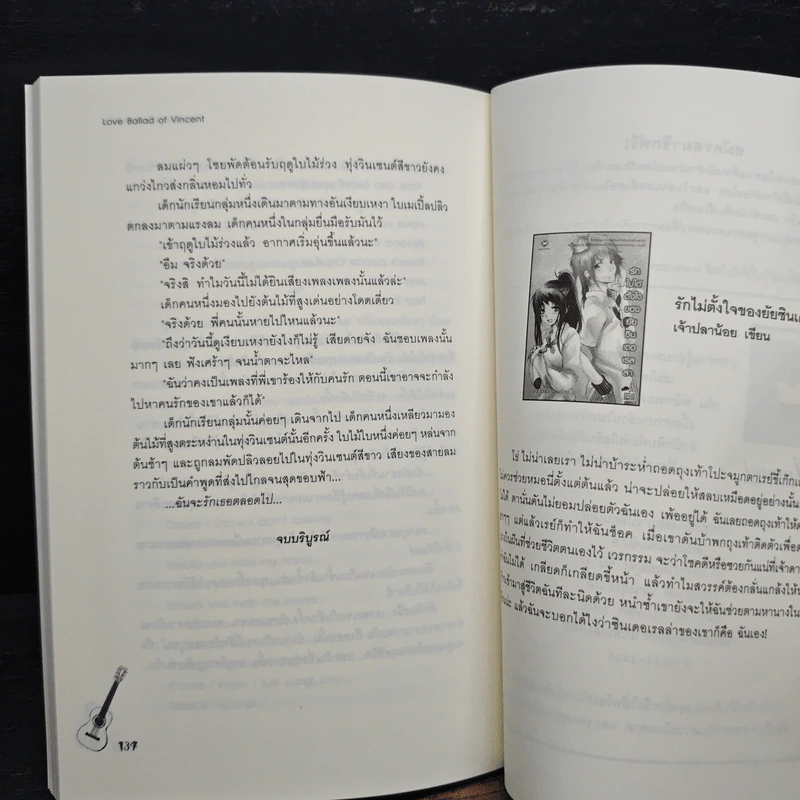 Love Ballad of Vincent
ลมแผ่วๆ โชยพัดต้อนรับฤดูใบไม้ร่วง ทุ่งวินเซนต์สีขาวยังคง
แกว่งไกวส่งกลิ่นหอมไปทั่ว
เด็กนักเรียนกลุ่มหนึ่งเดินมาตามทางอันเงียบเหงา ใบเมเปิ้ลปลิว
ตกลงมาตามแรงลม เด็กคนหนึ่งในกลุ่มยื่นมือรับมันไว้
"เข้าฤดูใบไม้ร่วงแล้ว อากาศเริ่มอุ่นขึ้นแล้วนะ"
"อืม จริงด้วย"
"จริงสิ ทำไมวันนี้ไม่ได้ยินเสียงเพลงเพลงนั้นแล้วล่ะ"
เด็กคนหนึ่งมองไปยังต้นไม้ที่สูงเด่นอย่างโดดเดี่ยว
"จริงด้วย พี่คนนั้นหายไปไหนแล้วนะ"
"ถึงว่าวันนี้ดูเงียบเหงายังไงก็ไม่รู้ เสียดายจัง ฉันชอบเพลงนั้น
มากๆ เลย ฟังเศร้าๆ จนน้ำตาจะไหล"
"ฉันว่าคงเป็นเพลงที่พี่เขาร้องให้กับคนรัก ตอนนี้เขาอาจจะกำลัง
ไปหาคนรักของเขาแล้วก็ได้"
เด็กนักเรียนกลุ่มนั้นค่อยๆ เดินจากไป เด็กคนหนึ่งเหลียวมามอง
ต้นไม้ที่สูงตระหง่านในทุ่งวินเซนต์นั้นอีกครั้ง ใบไม้ใบหนึ่งค่อยๆ หล่นจาก
ต้นช้าๆ และถูกลมพัดปลิวลอยไปในทุ่งวินเซนต์สีขาว เสียงของสายลม
ราวกับเป็นคำพูดที่ส่งไปไกลจนสุดขอบฟ้า...
...ฉันจะรักเธอตลอดไป...
จบบริบูรณ์
137
รักไม่ตั้งใจของยัยซินเด
เจ้าปลาน้อย เขียน
โธ่ ไม่น่าเลยเรา ไม่น่าบ้าระห่ำถอดถุงเท้าโปะจมูกตาเรย์ขี้เก๊ก
ช่วยหมอนี่ตั้งแต่ต้นแล้ว น่าจะปล่อยให้สลบเหมือดอยู่อย่างนั้น
ได้ ตานั่นดันไม่ยอมปล่อยตัวฉันเอง เพ้ออยู่ได้ ฉันเลยถอดถุงเท้าให้
แต่แล้วเรย์ก็ทำให้ฉันช็อค เมื่อเขาดันบ้าพกถุงเท้าติดตัวเพื่อ
มันที่ช่วยชีวิตตนเองไว้ เวรกรรม จะว่าโชคดีหรือซวยกันแน่ที่เจ้าดา
ไม่ได้ เกลียดก็เกลียดขี้หน้า แล้วทำไมสวรรค์ต้องกลั่นแกล้งให้
เข้ามาสู่ชีวิตฉันทีละนิดด้วย หนำซ้ำเขายังจะให้ฉันช่วยตามหานางใน
แล้วฉันจะบอกได้ไงว่าซินเดอเรลล่าของเขาก็คือ ฉันเอง!